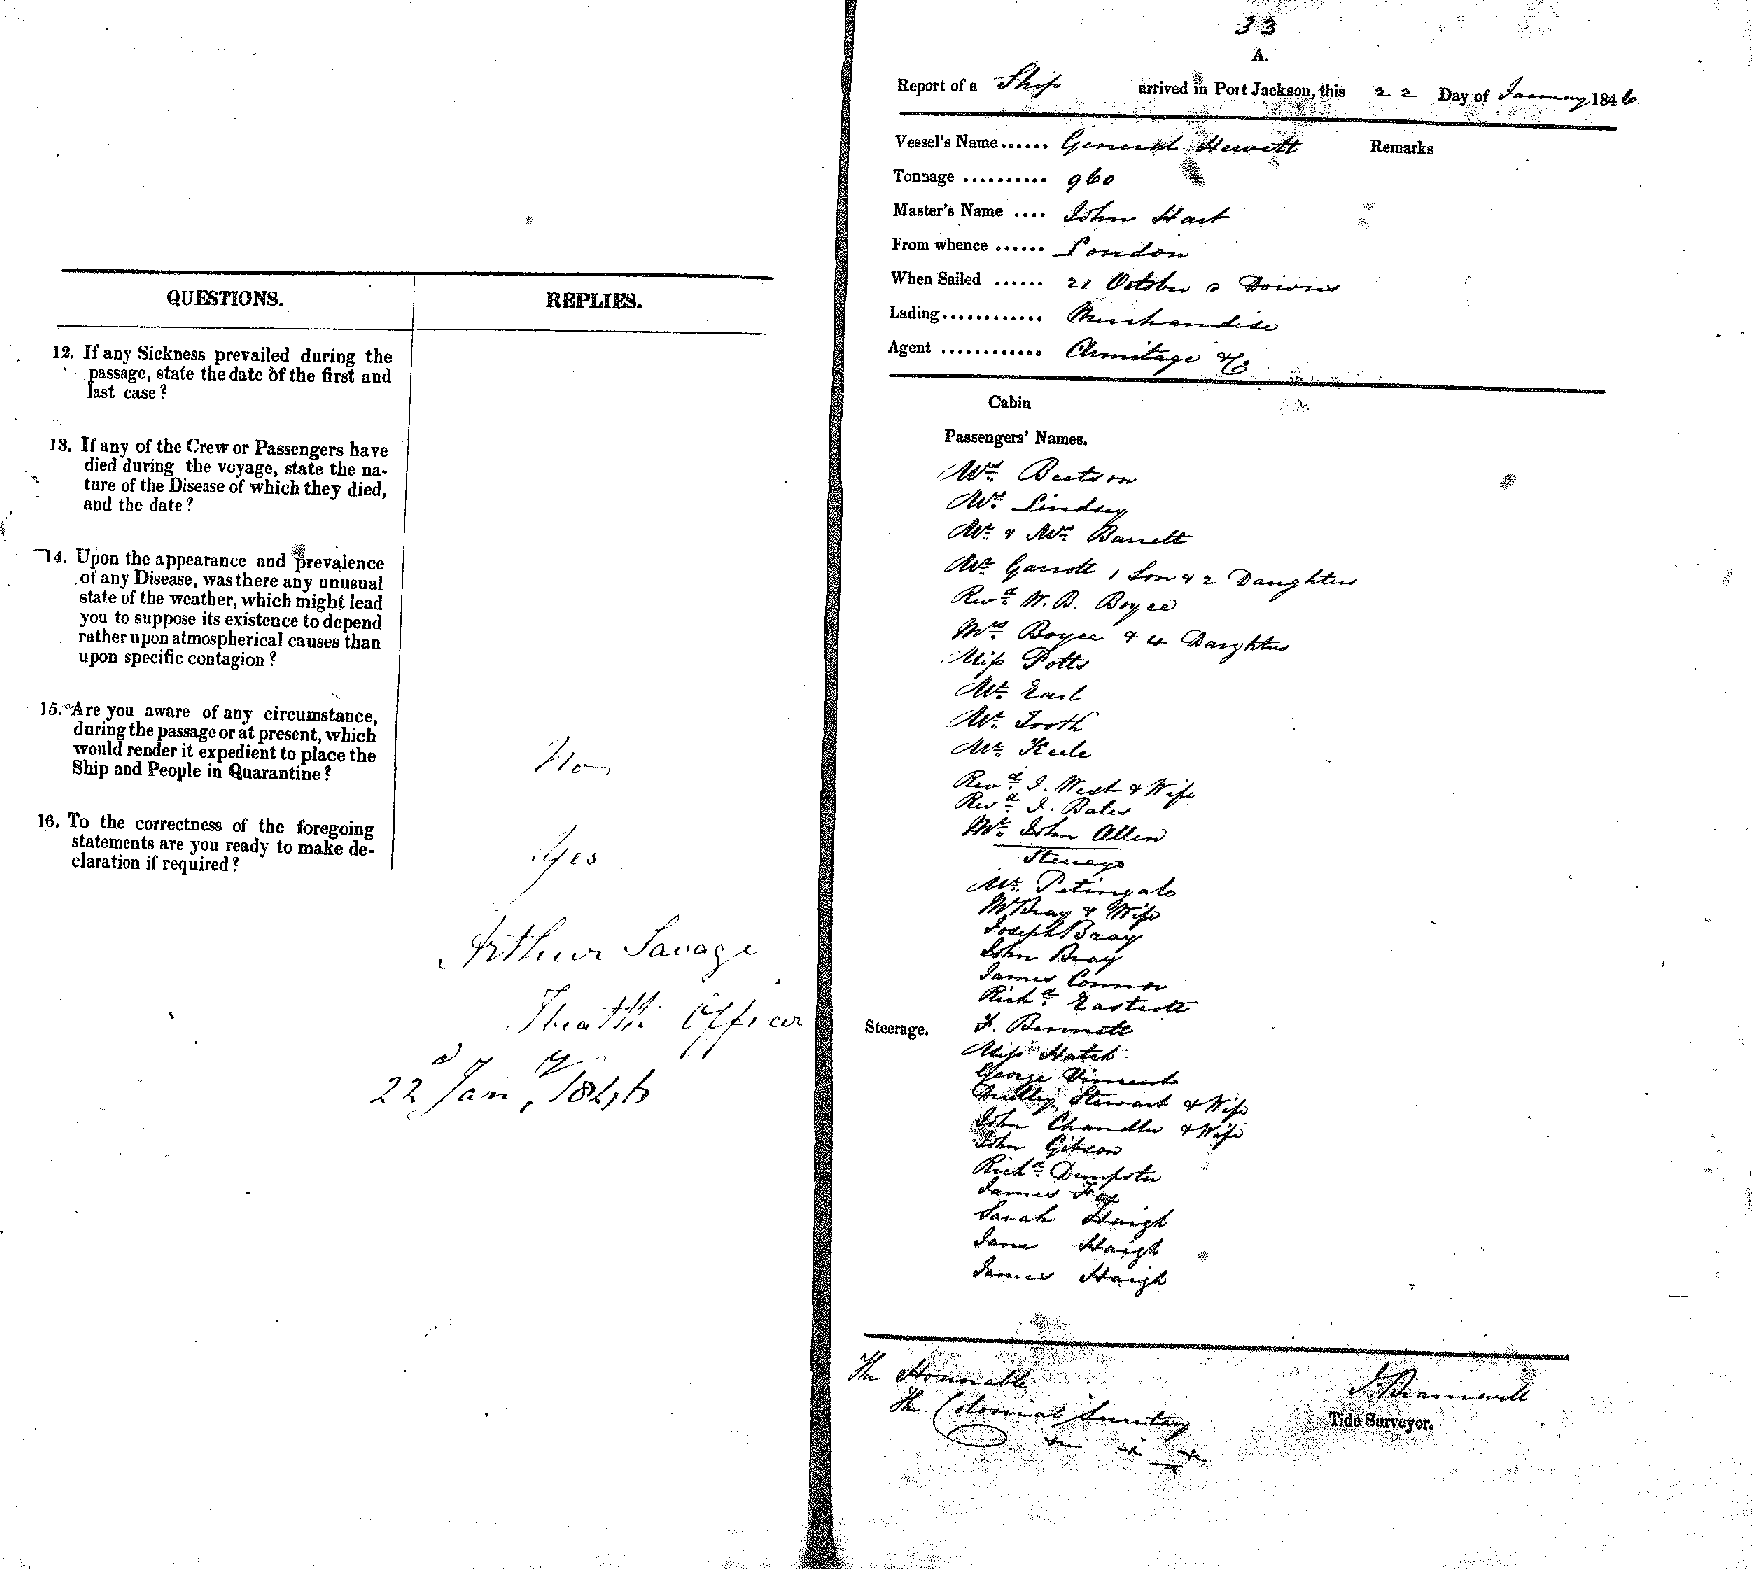 QUESTIONS. REPLIES.
12. If any Sickness prevailed during the
passage, state the date of the first and
last case?
13. If any of the Crew or Passengers have
died during the voyage, state the na-
ture of the Disease of which they died,
and the date?
14. Upon the appearance and prevalence
of any Disease, was there any unusual
state of the weather, which might lead
you to suppose its existence to depend
rather upon atmospherical causes than
upon specific contagion?
15. Are you aware of any circumstance,
during the passage or at present, which
would render it expedient to place the
Ship and People in Quarantine?
No
16. To the correctness of the foregoing
statements are you ready to make de-
claration if required?
Yes
Arthur Savage
Health Officer
22d Jany, 1846
33
A.
Report of a Ship arrived in Port Jackson, this 22 Day of January 1846
Vessel's Name...... General Hewett Remarks
Tonnage .......... 960
Master's Name .... John Hart
From whence ...... London
When Sailed ...... 21 October Downs
Lading............ Merchandise
Agent ............ Armitage & Co
Cabin
Passengers' Names.
Beetson
Lindsey
Mr & Mrs Barrett
Mr Garrett 1 Son & 2 Daughters
Revd. W. B. Boyce
Mrs Boyce & 4 Daughters
Miss Potts
Mr. Earl
Mr. Tooth
Mr. Keele
Revd. J. West & Wife
Revd. J. Bates
Mr. John Allen
Steerage
Mr. Petingale
Mr Bray & Wife
Joseph Bray
John Bray
James Connor
Richd.
Steerage. Bennett
Miss Hatch
George Vincent
Stewart & Wife
John Chandler & Wife
John Gibson
Richd. Dempster
James Fox
Sarah Haigh
Jane Haigh
James Haigh
The Honorable
The Colonial Secretary
Tide Surveyor.